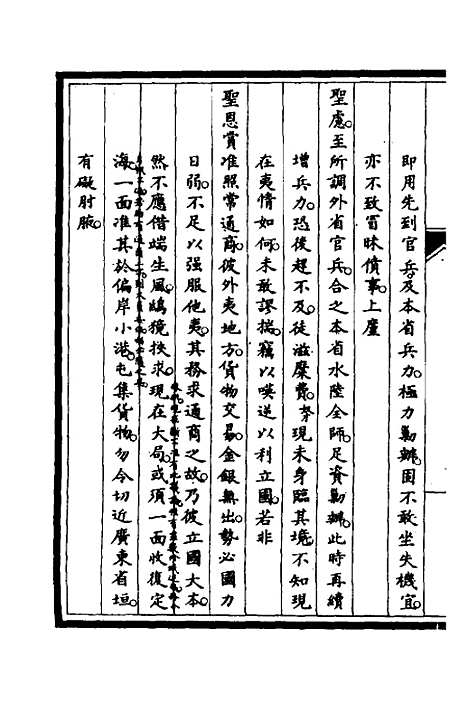 即用先到官兵。及本省兵力。極力勦辦。固不敢坐失機宜。
亦不致冒昧僨事。上廑
聖慮。至所調外省官兵。合之本省水陸全師。足資勦辦。此時再續
增兵力。恐後趕不及。徒滋糜費。
現未身臨其境。不知現
在夷情如何。未敢謬揣。竊以𠸄逆以利立國。若非
聖恩賞准照常通商。彼外夷地方。貨物交易。金銀無出。勢必國力
日弱。不足以強服他夷。其務求通商之故。乃彼立國大本。
然不應借端生風。鴟獍挾求。現在大局。或須一面收復定
海。一面准其於偏岸小港。屯集貨物。勿令切近廣東省垣。
有礙肘腋。